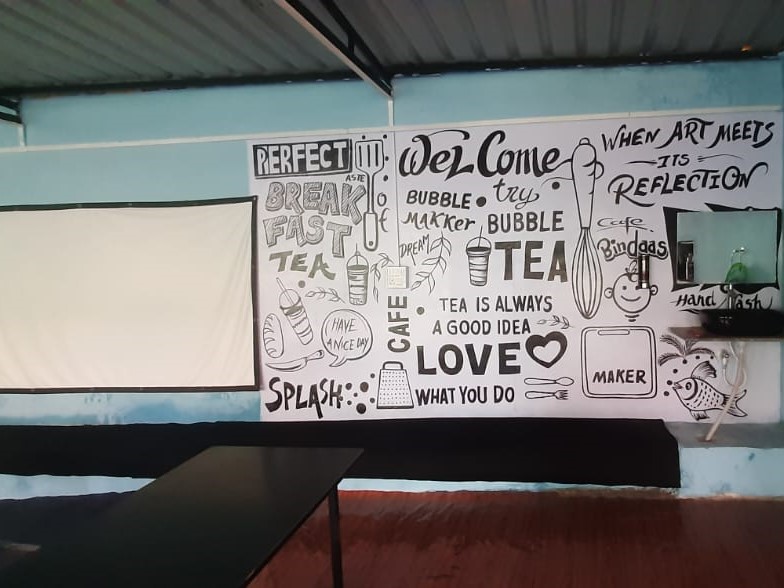 PERFECT
ASTE
BREAK
FAST
of
TEA
HAVE
A NICE DAY
SPLASH
WELCOME
try
BUBBLE
MAKKer
BUBBLE
TEA
DREAM
CAFE
TEA IS ALWAYS
A GOOD IDEA
LOVE
WHAT YOU DO
WHEN ART MEETS
ITS
REFLECTION
Cafe
Bindaas
Hand Wash
MAKER